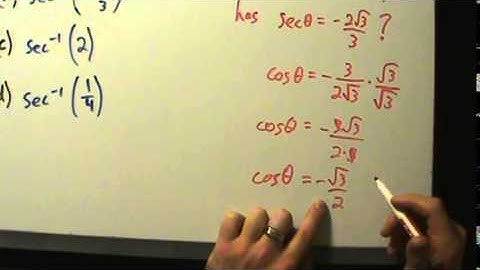 3)
c) sec⁻¹(2)
d) sec⁻¹(1/4)
has secθ = -2√3/3 ?
cosθ = -3/(2√3) · √3/√3
cosθ = -3√3/(2·3)
cosθ = -√3/2